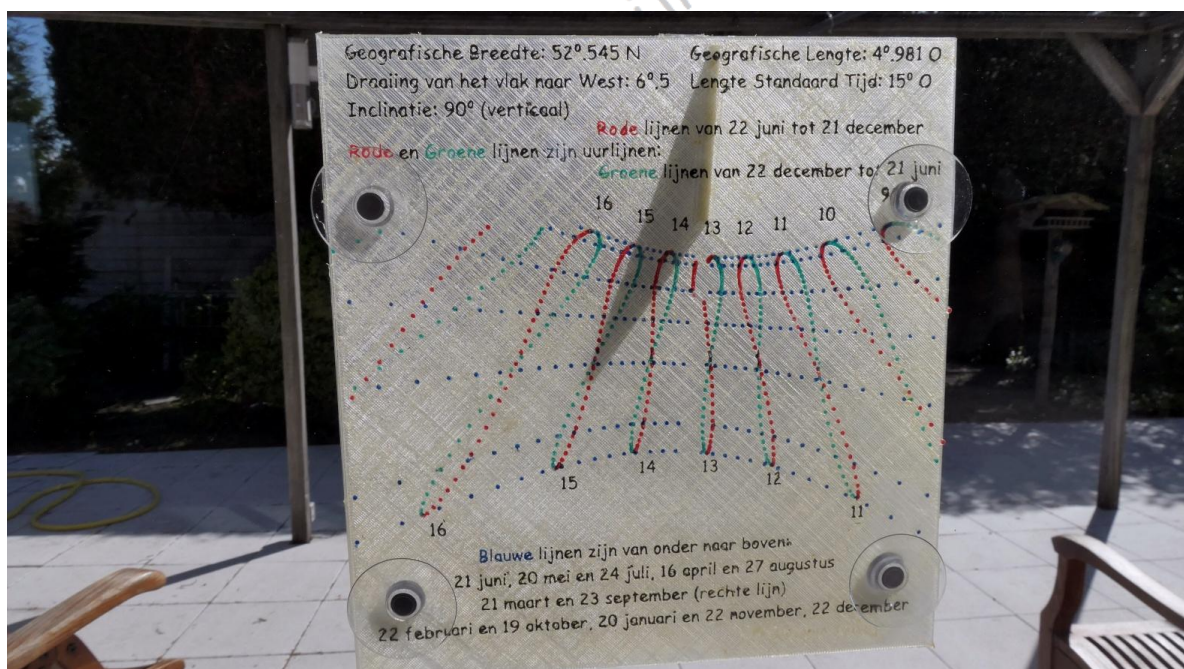 Geografische Breedte: 52°.545 N
Geografische Lengte: 4°.981 O
Draaiing van het vlak naar West: 6°,5
Lengte Standaard Tijd: 15° O
Inclinatie: 90° (verticaal)
Rode lijnen van 22 juni tot 21 december
Rode en Groene lijnen zijn uurlijnen:
Groene lijnen van 22 december tot 21 juni
16 15 14 13 12 11 10 9
16 15 14 13 12 11
Blauwe lijnen zijn van onder naar boven:
21 juni, 20 mei en 24 juli, 16 april en 27 augustus
21 maart en 23 september (rechte lijn)
22 februari en 19 oktober, 20 januari en 22 november, 22 december